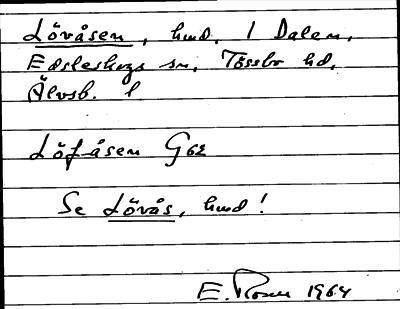 Lövåsen, hmd. / Dalen,
Edsleskogs sn, Tössbo hd,
Älvsb. l
Löfåsen G62
Se Lövås, hmd!
E. Rosen 1964